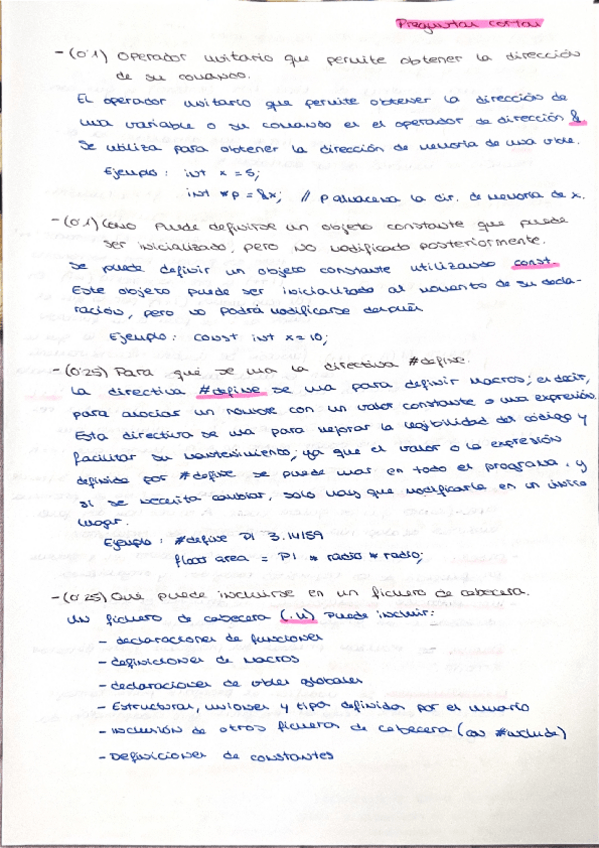 Preguntas cortas
- (0'1) Operador unitario que permite obtener la dirección
de su comando.
El operador unitario que permite obtener la dirección de
una variable o su comando es el operador de dirección &.
Se utiliza para obtener la dirección de memoria de una vble.
Ejemplo : int x = 5;
int *p = &x; // p almacena la dir. de memoria de x.
- (0'1) Como puede definirse un objeto constante que puede
ser inicializado, pero no modificado posteriormente.
Se puede definir un objeto constante utilizando const.
Este objeto puede ser inicializado al momento de su decla-
ración, pero no podrá modificarse después
Ejemplo : const int x = 10;
- (0'25) Para qué se usa la directiva #define.
La directiva #define se usa para definir macros; es decir,
para asociar un nombre con un valor constante o una expresión.
Esta directiva se usa para mejorar la legibilidad del código y
facilitar su mantenimiento, ya que el valor o la expresión
definida por #define se puede usar en todo el programa, y
si se necesita cambiar, solo hay que modificarla en un único
lugar.
Ejemplo : #define PI 3.14159
float area = PI * radio * radio;
- (0'25) Qué puede incluirse en un fichero de cabecera.
Un fichero de cabecera (.h) puede incluir:
- declaraciones de funciones
- definiciones de macros
- declaraciones de vbles globales
- Estructuras, uniones y tipos definidos por el usuario
- inclusión de otros ficheros de cabecera (con #include)
- Definiciones de constantes